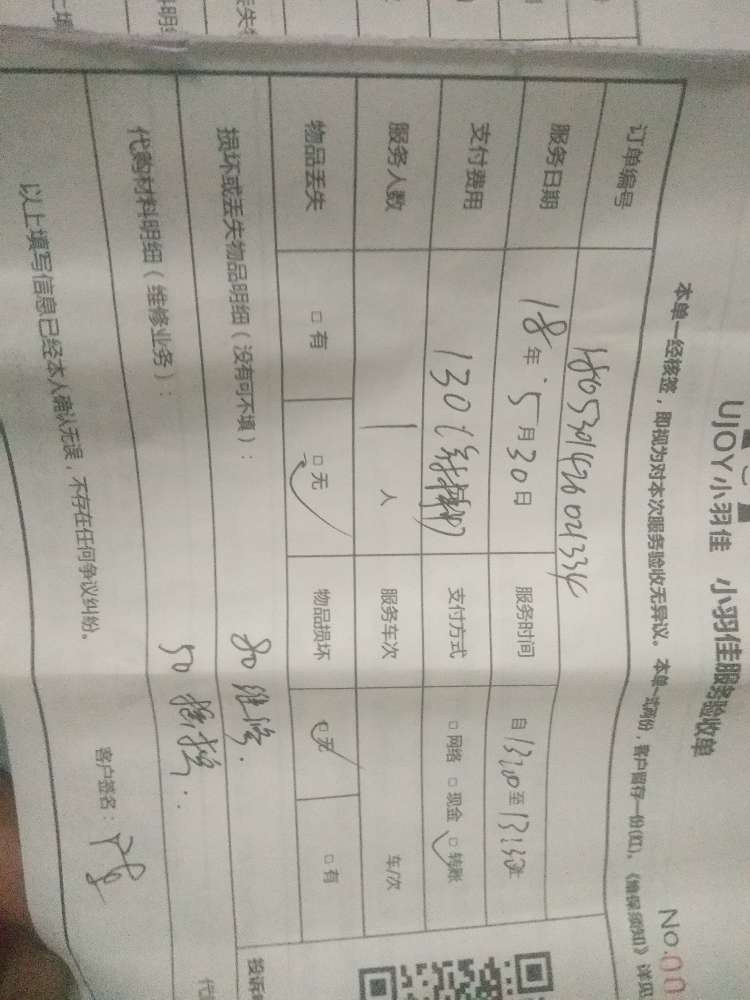 UJOY小羽佳 小羽佳服务验收单
No.00
本单一经核签，即视为对本次服务验收无异议。本单一式两份，客户留存一份(红)，《维保须知》详见
订单编号 1805301426021334
服务日期 18年5月30日 服务时间 自13:00至13:30止
支付费用 130 支付方式 □网络 □现金 □转账
服务人数 1人 服务车次 车/次
物品丢失 □有 □无 物品损坏 □无 □有
损坏或丢失物品明细（没有可不填）：
80维修.
代购材料明细（维修业务）：
50
以上填写信息已经本人确认无误，不存在任何争议纠纷。
客户签名：
投诉
代